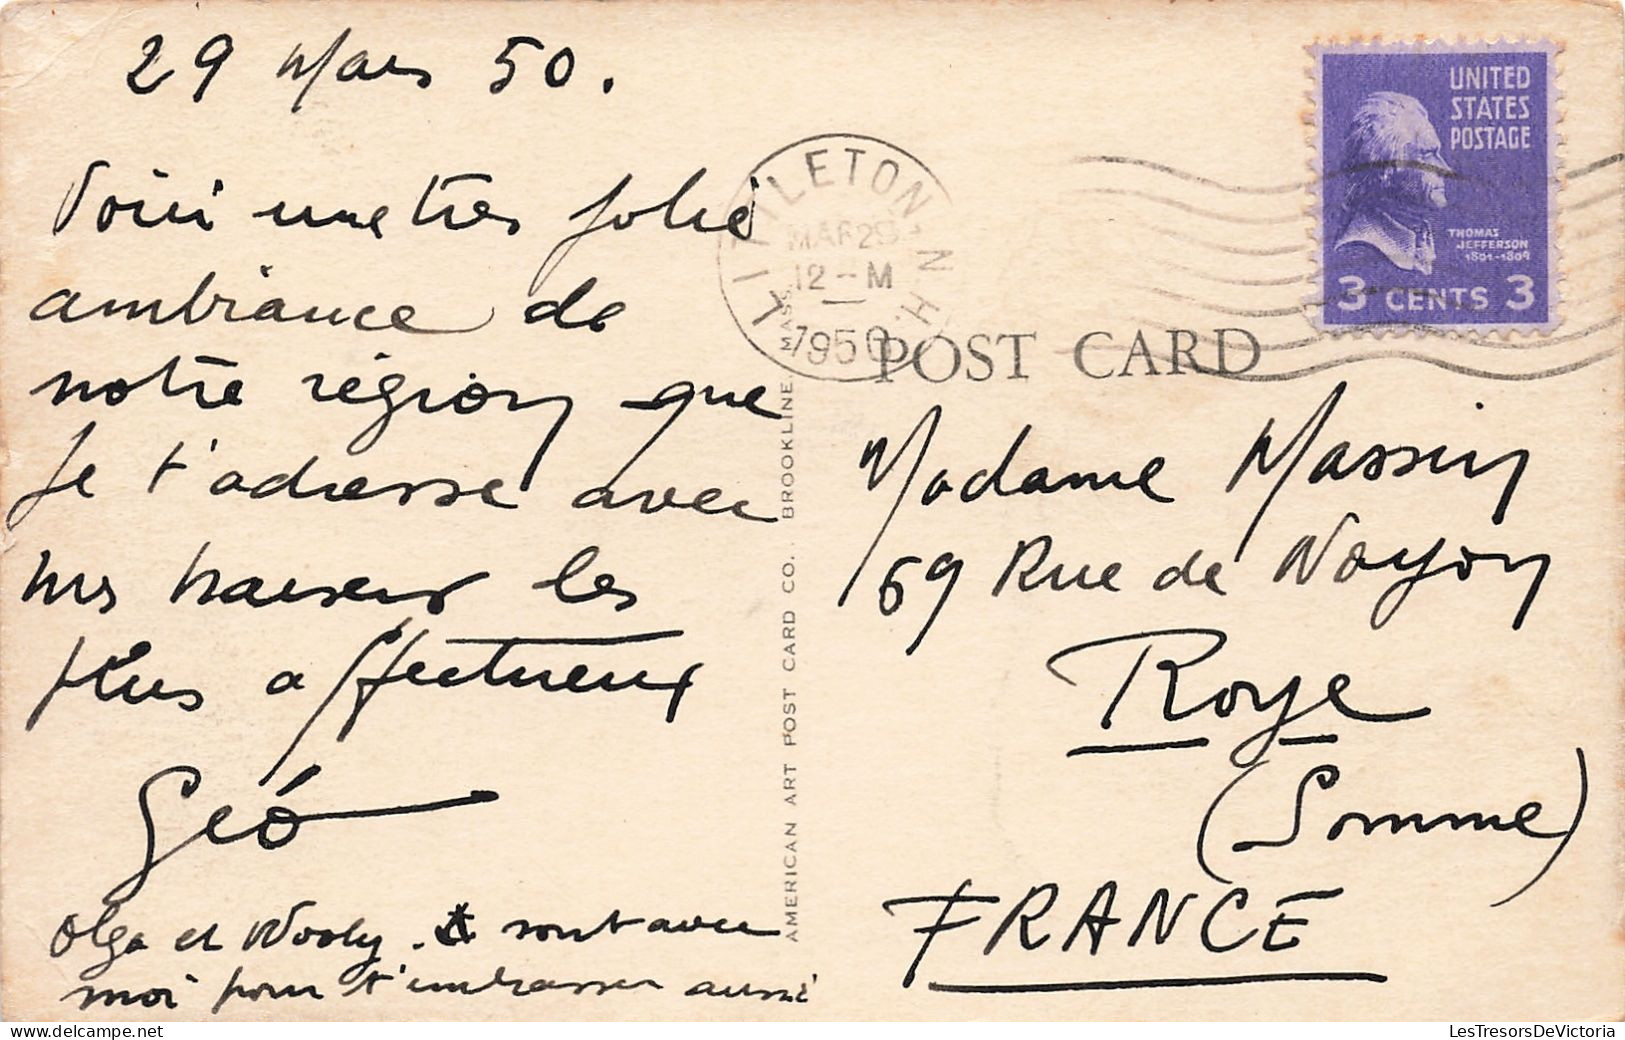 29 Mars 50.
Voici une très jolie
ambiance de
notre région que
je t'adresse avec
mes baiser les
plus affectueux
Géo
Olga et Wooly . sont avec
moi pour t'embrasser aussi
LETON N.H.
MAR 29
12-M
1950
UNITED
STATES
POSTAGE
THOMAS
JEFFERSON
1801-1809
3 CENTS 3
POST CARD
AMERICAN ART POST CARD CO., BROOKLINE, MASS.
Madame Massin
69 Rue de Noyon
Roye
(Somme)
FRANCE
LesTresorsDeVictoria